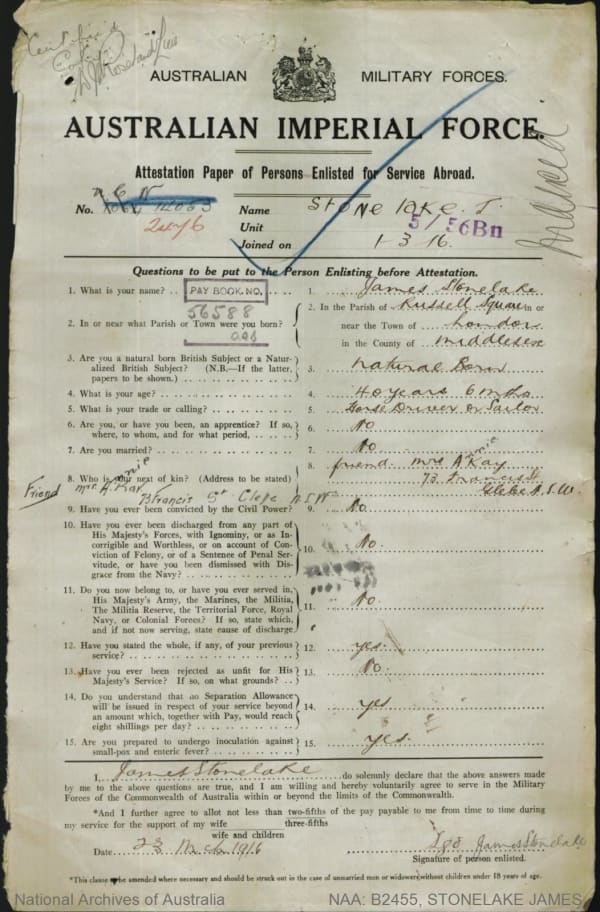 AUSTRALIAN MILITARY FORCES.
AUSTRALIAN IMPERIAL FORCE.
Attestation Paper of Persons Enlisted for Service Abroad.
No. 2476
Name Stonelake. J.
Unit 5/56Bn
Joined on 1-3-16.
Manced
Questions to be put to the Person Enlisting before Attestation.
1. What is your name? .. 1. James Stonelake
PAY BOOK NO.
56588
2. In or near what Parish or Town were you born?
2. In the Parish of Russell Square in or
near the Town of London
in the County of Middlesex
3. Are you a natural born British Subject or a Natur-
alized British Subject? (N.B.—If the latter,
papers to be shown.)
3. Natural Born
4. What is your age? 4. 40 years 6 mths
5. What is your trade or calling? 5. Horse Driver or Sailor
6. Are you, or have you been, an apprentice? If so,
where, to whom, and for what period,
6. No
7. Are you married? 7. No
8. Who is your next of kin? (Address to be stated)
8. friend Mrs Annie Kay
73 Francis St
Glebe N.S.W.
Friend Mrs. Annie Kay
Francis St Glebe N.S.W
9. Have you ever been convicted by the Civil Power? 9. No.
10. Have you ever been discharged from any part of
His Majesty's Forces, with Ignominy, or as In-
corrigible and Worthless, or on account of Con-
viction of Felony, or of a Sentence of Penal Ser-
vitude, or have you been dismissed with Dis-
grace from the Navy?
10. No.
11. Do you now belong to, or have you ever served in,
His Majesty's Army, the Marines, the Militia,
The Militia Reserve, the Territorial Force, Royal
Navy, or Colonial Forces? If so, state which,
and if not now serving, state cause of discharge
11. No.
12. Have you stated the whole, if any, of your previous
service?
12. yes.
13. Have you ever been rejected as unfit for His
Majesty's Service? If so, on what grounds?
13. No.
14. Do you understand that no Separation Allowance
will be issued in respect of your service beyond
an amount which, together with Pay, would reach
eight shillings per day?
14. yes
15. Are you prepared to undergo inoculation against
small-pox and enteric fever?
15. yes.
I, James Stonelake do solemnly declare that the above answers made
by me to the above questions are true, and I am willing and hereby voluntarily agree to serve in the Military
Forces of the Commonwealth of Australia within or beyond the limits of the Commonwealth.
*And I further agree to allot not less than two-fifths of the pay payable to me from time to time during
three-fifths
my service for the support of my wife
wife and children
Date 23 Mch 1916
Sgd James Stonelake
Signature of person enlisted.
*This clause to be amended where necessary and should be struck out in the case of unmarried men or widowers without children under 18 years of age.
National Archives of Australia
NAA: B2455, STONELAKE JAMES